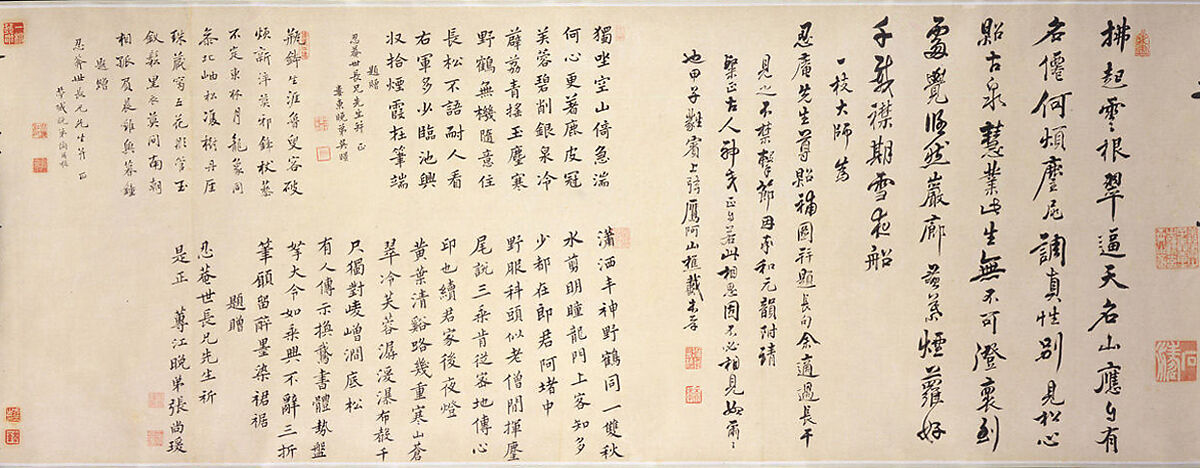 拂起雲根翠逼天名山應有
名僊何煩麈尾調真性別見松心
貽古泉慧業此生無不可澄裏到
處覺翛然巖廊黃葉煙蘿好
千載襟期雪夜船
一枝大師為
忍庵先生尊貽補圖并題長句余適過長干
見之不禁擊節因亦和元韻附請
槩正古人神交正若此相思因不必相見如爾爾
也甲子蕤賓上浣鷹阿山樵戴本孝
獨坐空山倚急湍
何心更著鹿皮冠
芙蓉碧削銀泉冷
薜荔青搖玉麈寒
野鶴無機隨意住
長松不語耐人看
右軍多少臨池興
収拾煙霞在筆端
題贈
忍菴世長兄先生并正
婁東晚弟吳暻
瓶鉢生涯魯叟容破
煩新洋莫邪錦
不定東林月龍象同
參北岫松馮樹丹厓
珠藏五花彩筆玉
釵鬆里衣莫問南朝
相孤負晨雞與暮鐘
題贈
忍菴世長兄先生并正
瀟洒丰神野鶴同一雙秋
水剪明瞳龍門上客知多
少都在郎君阿堵中
野服科頭似老僧閒揮麈
尾說三乘肯從客地傳心
印也續君家後夜燈
黃葉清谿路幾重寒山蒼
翠冷芙蓉潺湲瀑布殷千
尺獨對崚嶒澗底松
有人傳示換鵞書體勢盤
拏大令如乘興不辭三折
筆願留醉墨染裙裾
題贈
忍菴世長兄先生祈
是正 蓴江晚弟張尚瑗